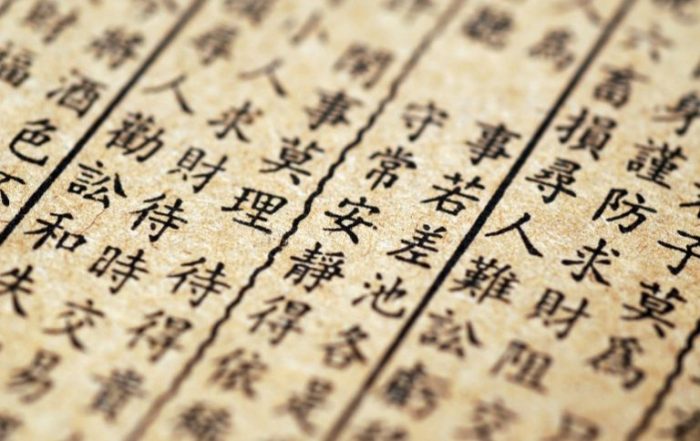 子莫為
身謹防求財阻交
六畜損尋人難訟虧
為事若差池各是
守常安靜得依
閒事莫理待得貴
小人求財待時交易
尋人勸訟和失
將酒色不
財福